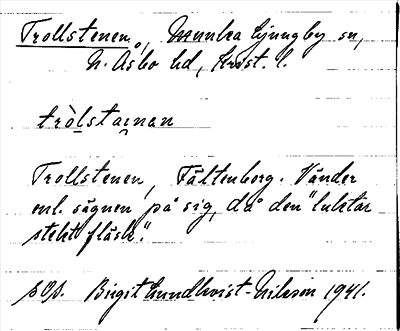 Trollstenen, Munka Ljungby sn,
N. Åsbo hd, Krist. l.
tròlstainan
Trollstenen, Fältenborg. Vänder
enl. sägnen på sig, då den "luktar
stekt fläsk."
Birgit Lundkvist-Nilsson 1941.